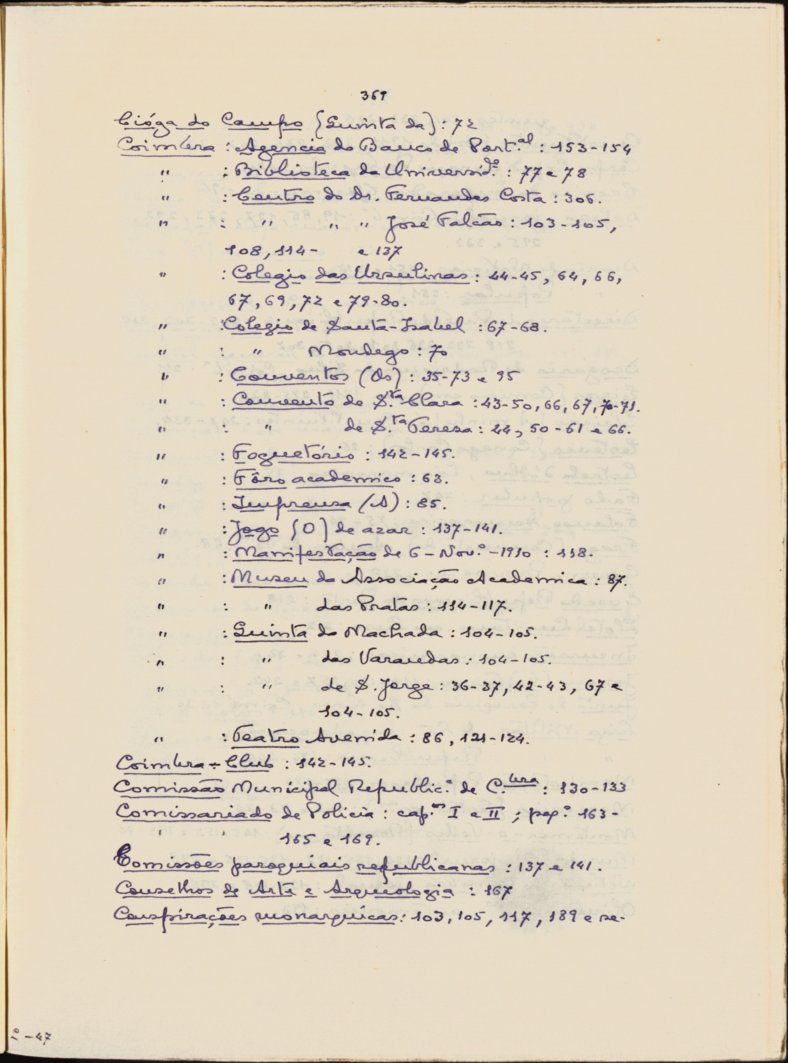 369
Cióga do Campo (Quinta da): 72
Coimbra : Agencia do Banco de Port.al : 153-154
" : Biblioteca da Universid.de : 77 e 78
" : Centro do Dr. Fernandes Costa : 306.
" : " " " José Falcão : 103-105,
108, 114- e 137
" : Colegio das Ursulinas : 44-45, 64, 66,
67, 69, 72 e 79-80.
" : Colegio de Santa-Isabel : 67-68.
" : " Mondego : 70
" : Conventos (Os) : 35-73 e 95
" : Convento de S.ta Clara : 43-50, 66, 67, 70-71.
" : " de S.ta Teresa : 44, 50-61 e 66.
" : Foguetório : 142-145.
" : Fôro academico : 63.
" : Imprensa (A) : 85.
" : Jogo (O) de azar : 137-141.
" : Manifestação de 6-Nov.º-1910 : 118.
" : Museu da Associação Academica : 87.
" : " das Pratas : 114-117.
" : Quinta da Machada : 104-105.
" : " das Varandas : 104-105.
" : " de S. Jorge : 36-37, 42-43, 67 e
104-105.
" : Teatro Avenida : 86, 121-124.
Coimbra-Club : 142-145.
Comissão Municipal Republic.ª de C.bra : 130-133
Comissariado de Policia : cap.os I e II ; pag.ª 163-
' ' 165 e 169.
Comissões paroquiais republicanas : 137 e 141.
Conselhos de Arte e Arqueologia : 167
Conspirações monarquicas : 103, 105, 117, 189 e se-
2-47